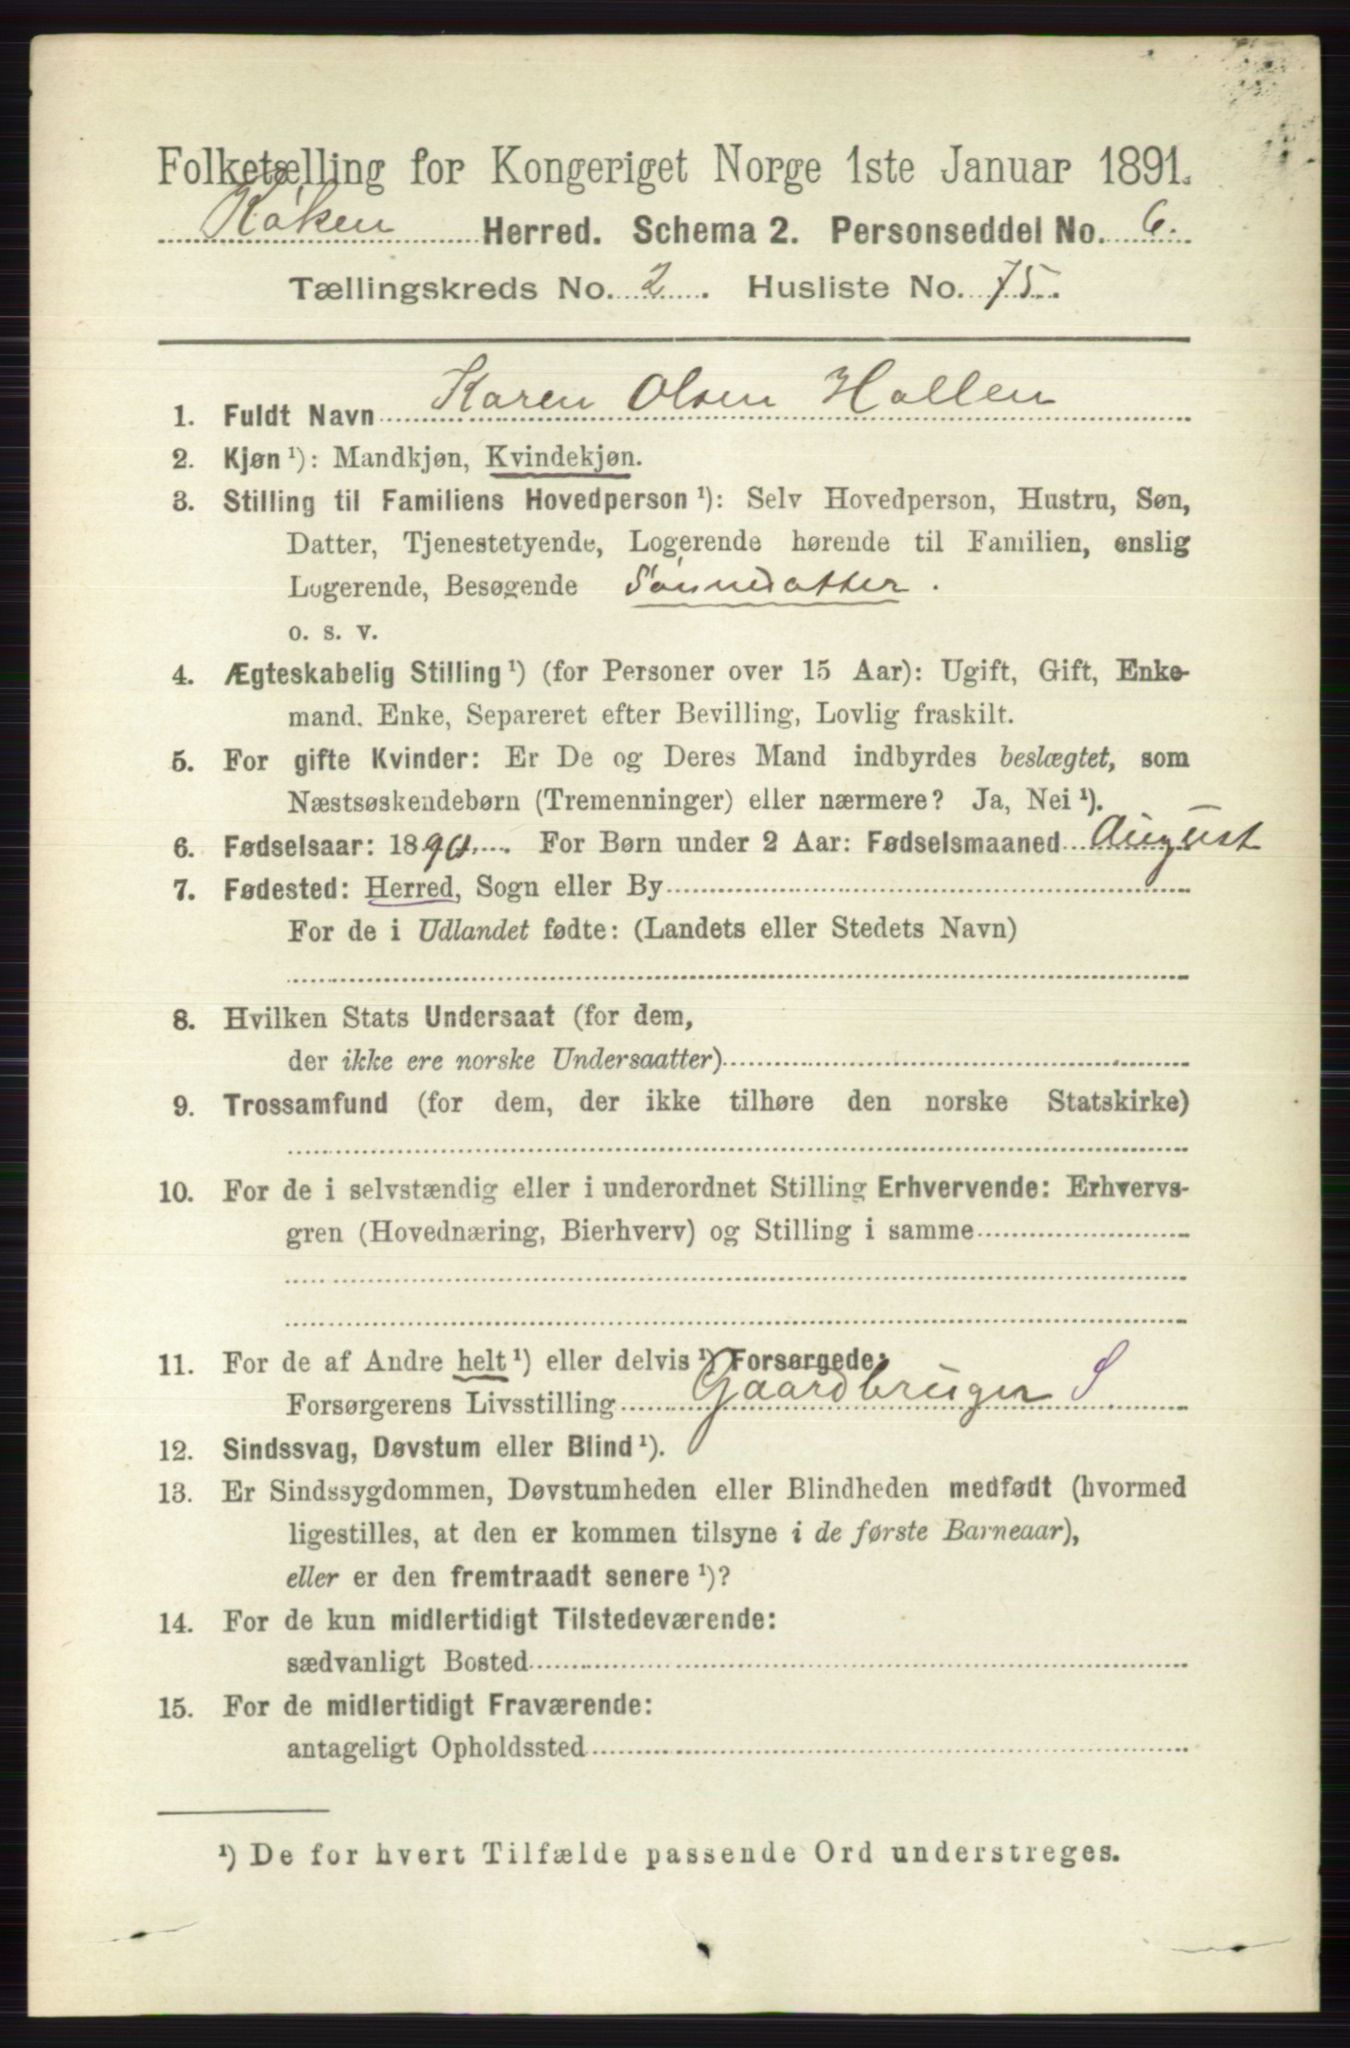 Folketælling for Kongeriget Norge 1ste Januar 1891.
Røken Herred. Schema 2. Personseddel No. 6.
Tællingskreds No. 2. Husliste No. 75.
1. Fuldt Navn Karen Olsen Hallen
2. Kjøn ¹): Mandkjøn, Kvindekjøn.
3. Stilling til Familiens Hovedperson ¹): Selv Hovedperson, Hustru, Søn,
Datter, Tjenestetyende, Logerende hørende til Familien, enslig
Logerende, Besøgende Sønnedatter.
o. s. v.
4. Ægteskabelig Stilling ¹) (for Personer over 15 Aar): Ugift, Gift, Enke-
mand, Enke, Separeret efter Bevilling, Lovlig fraskilt.
5. For gifte Kvinder: Er De og Deres Mand indbyrdes beslægtet, som
Næstsøskendebørn (Tremenninger) eller nærmere? Ja, Nei ¹).
6. Fødselsaar: 1890. For Børn under 2 Aar: Fødselsmaaned August
7. Fødested: Herred, Sogn eller By
For de i Udlandet fødte: (Landets eller Stedets Navn)
8. Hvilken Stats Undersaat (for dem,
der ikke ere norske Undersaatter)
9. Trossamfund (for dem, der ikke tilhøre den norske Statskirke)
10. For de i selvstændig eller i underordnet Stilling Erhvervende: Erhvervs-
gren (Hovednæring, Bierhverv) og Stilling i samme
11. For de af Andre helt ¹) eller delvis ¹) Forsørgede:
Forsørgerens Livsstilling Gaardbruger S
12. Sindssvag, Døvstum eller Blind ¹).
13. Er Sindssygdommen, Døvstumheden eller Blindheden medfødt (hvormed
ligestilles, at den er kommen tilsyne i de første Barneaar),
eller er den fremtraadt senere ¹)?
14. For de kun midlertidigt Tilstedeværende:
sædvanligt Bosted
15. For de midlertidigt Fraværende:
antageligt Opholdssted
¹) De for hvert Tilfælde passende Ord understreges.